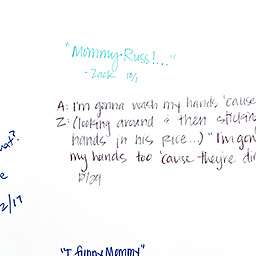 "Mommy-Russ!..."
- Zack 10/1
A: I'm gonna wash my hands 'cause
Z: (looking around & then stickin
hands in his rice...) "I'm gon
my hands too 'cause they're di
2/17
"I funny Mommy"